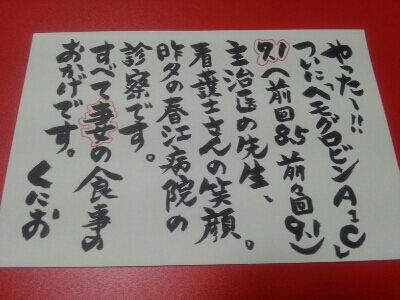 やったー!!
ついに「ヘモグロビンA1C」
7.1(前回8.5 前々回9.1)
主治医の先生、
看護士さんの笑顔。
昨夕の春江病院の
診察です。
すべて妻の食事の
おかげです。
くにお